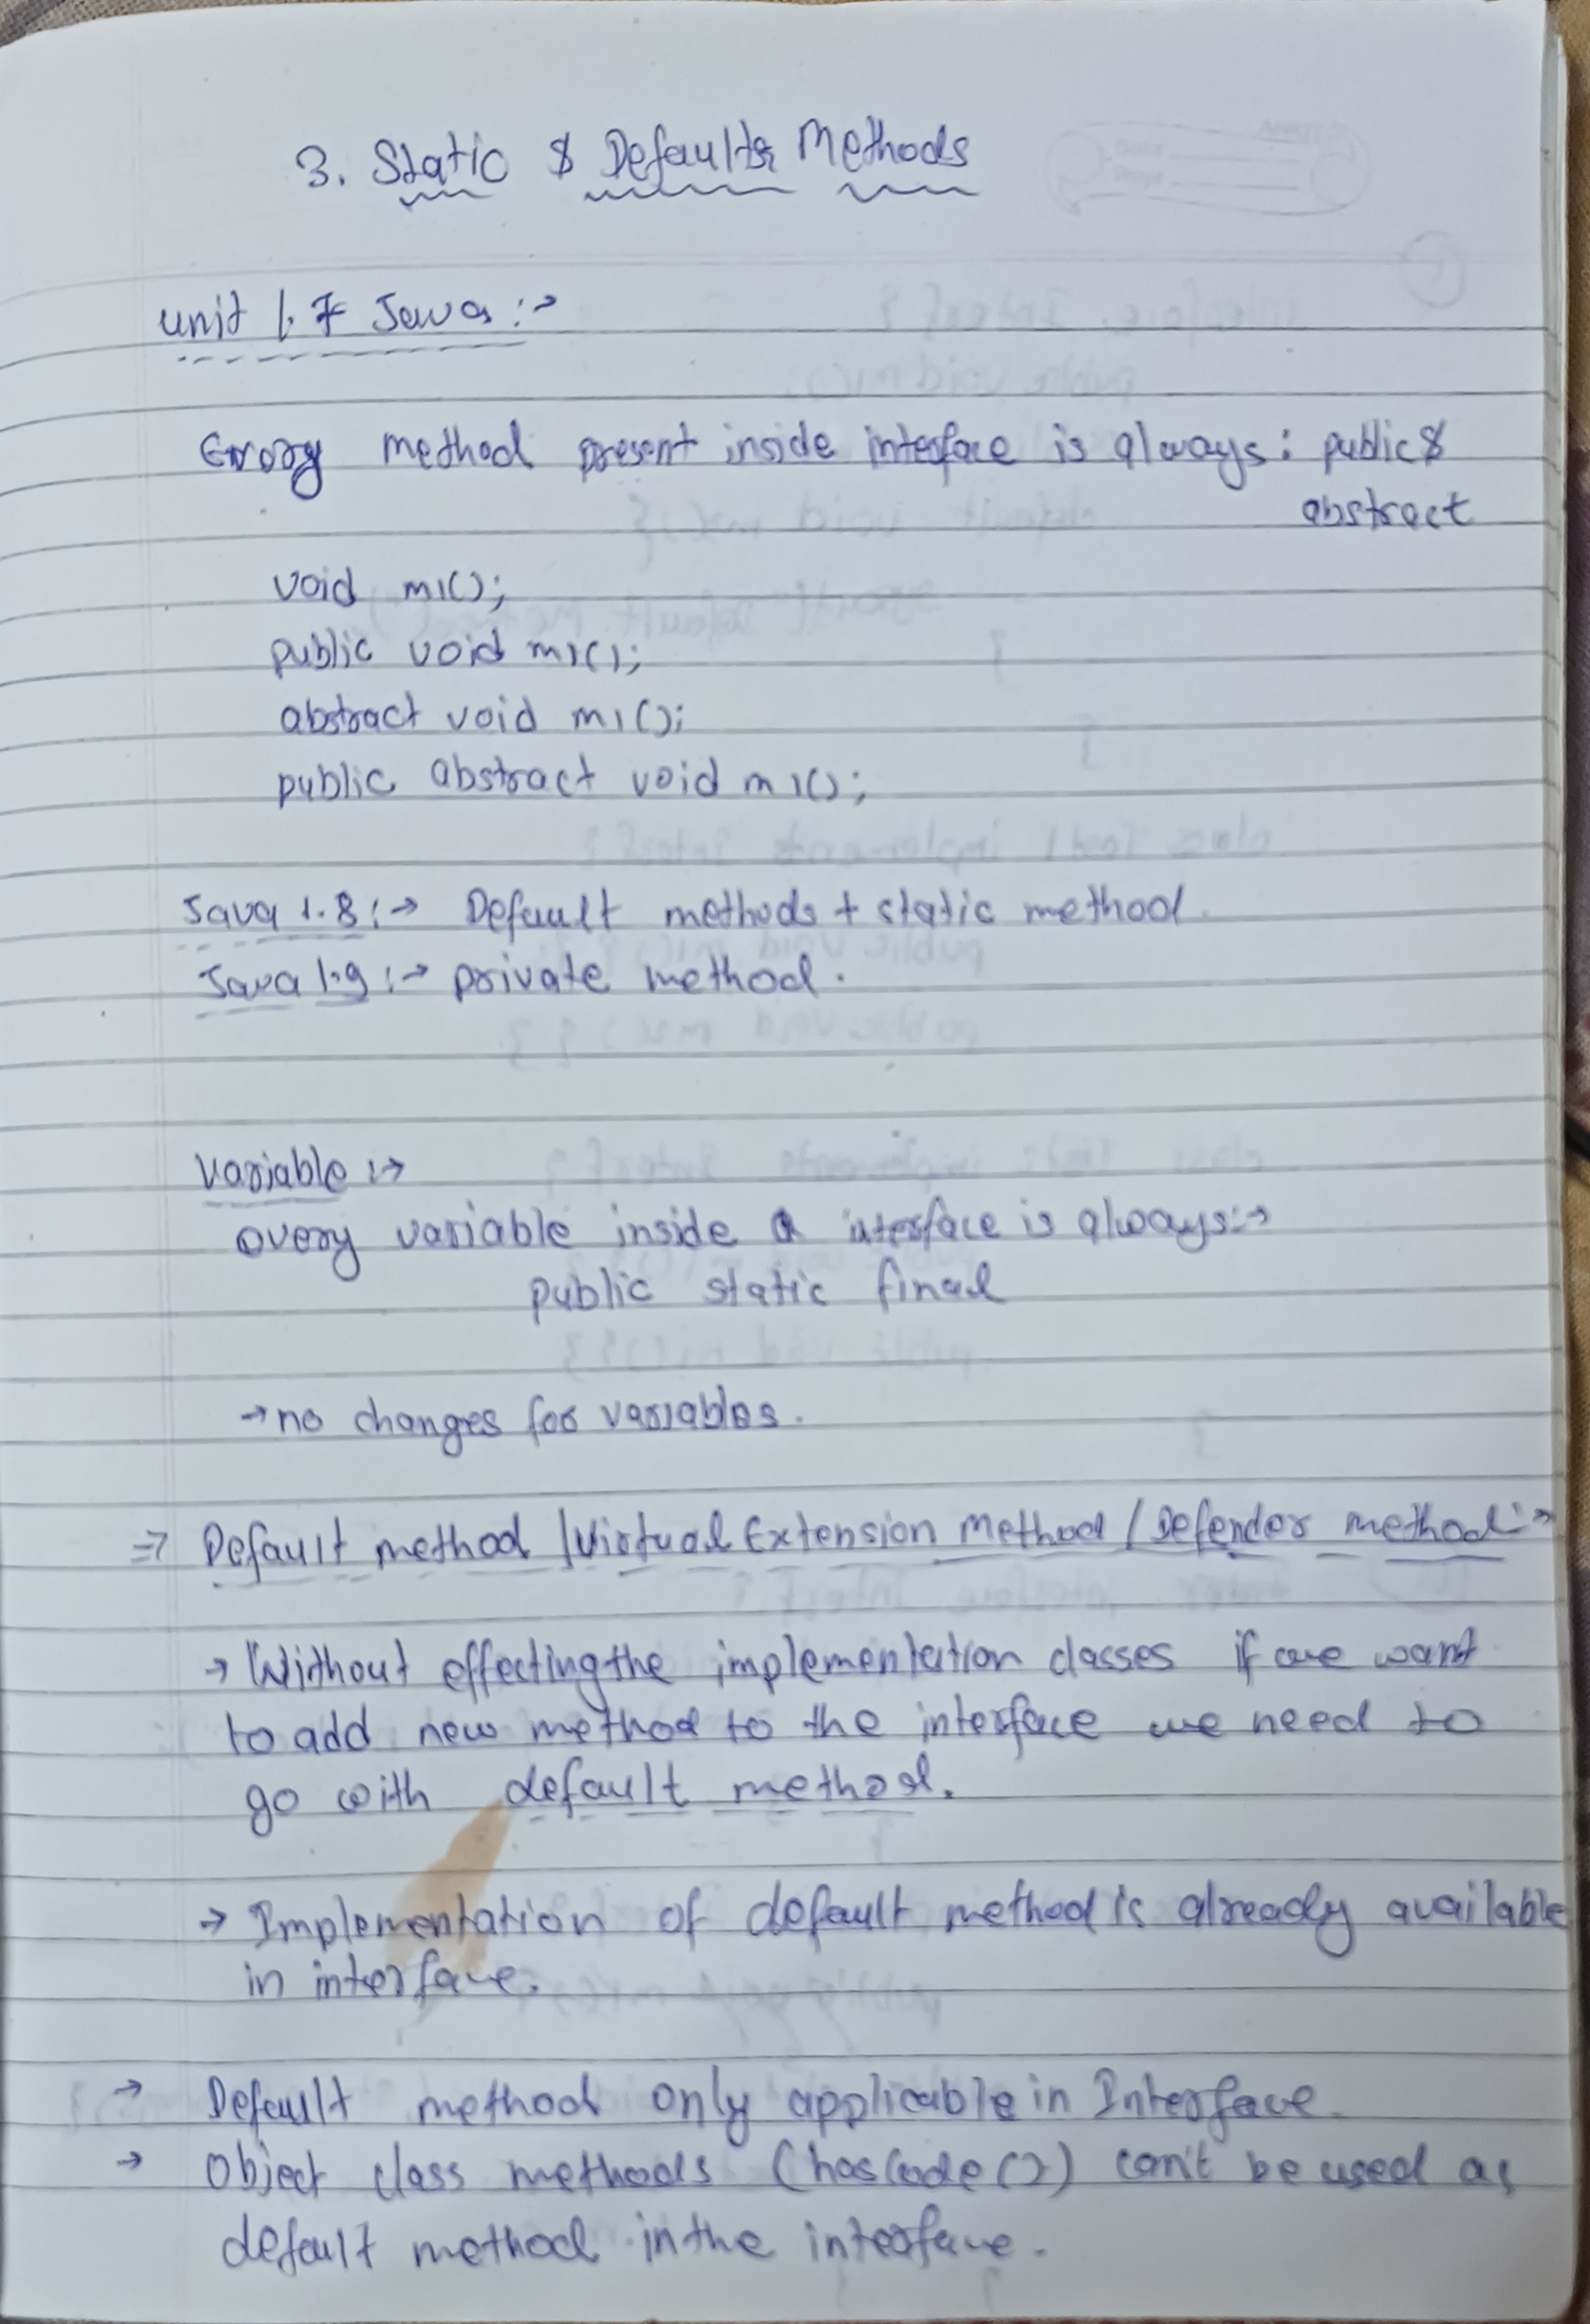 3. Static & Defaults Methods
unit 1.7 Java :->
Every method present inside interface is always : public &
abstract
void m1();
public void m1();
abstract void m1();
public abstract void m1();
Java 1.8 :-> Default methods + static method.
Java 1.9 :-> private method.
Variable :->
every variable inside a interface is always :->
public static final
-> no changes for variables.
=> Default method / Virtual Extension Method / Defender method :->
-> Without effecting the implementation classes if we want
to add new method to the interface we need to
go with default method.
-> Implementation of default method is already available
in interface.
-> Default method only applicable in Interface.
-> Object class methods (hasCode()) can't be used as
default method in the interface.